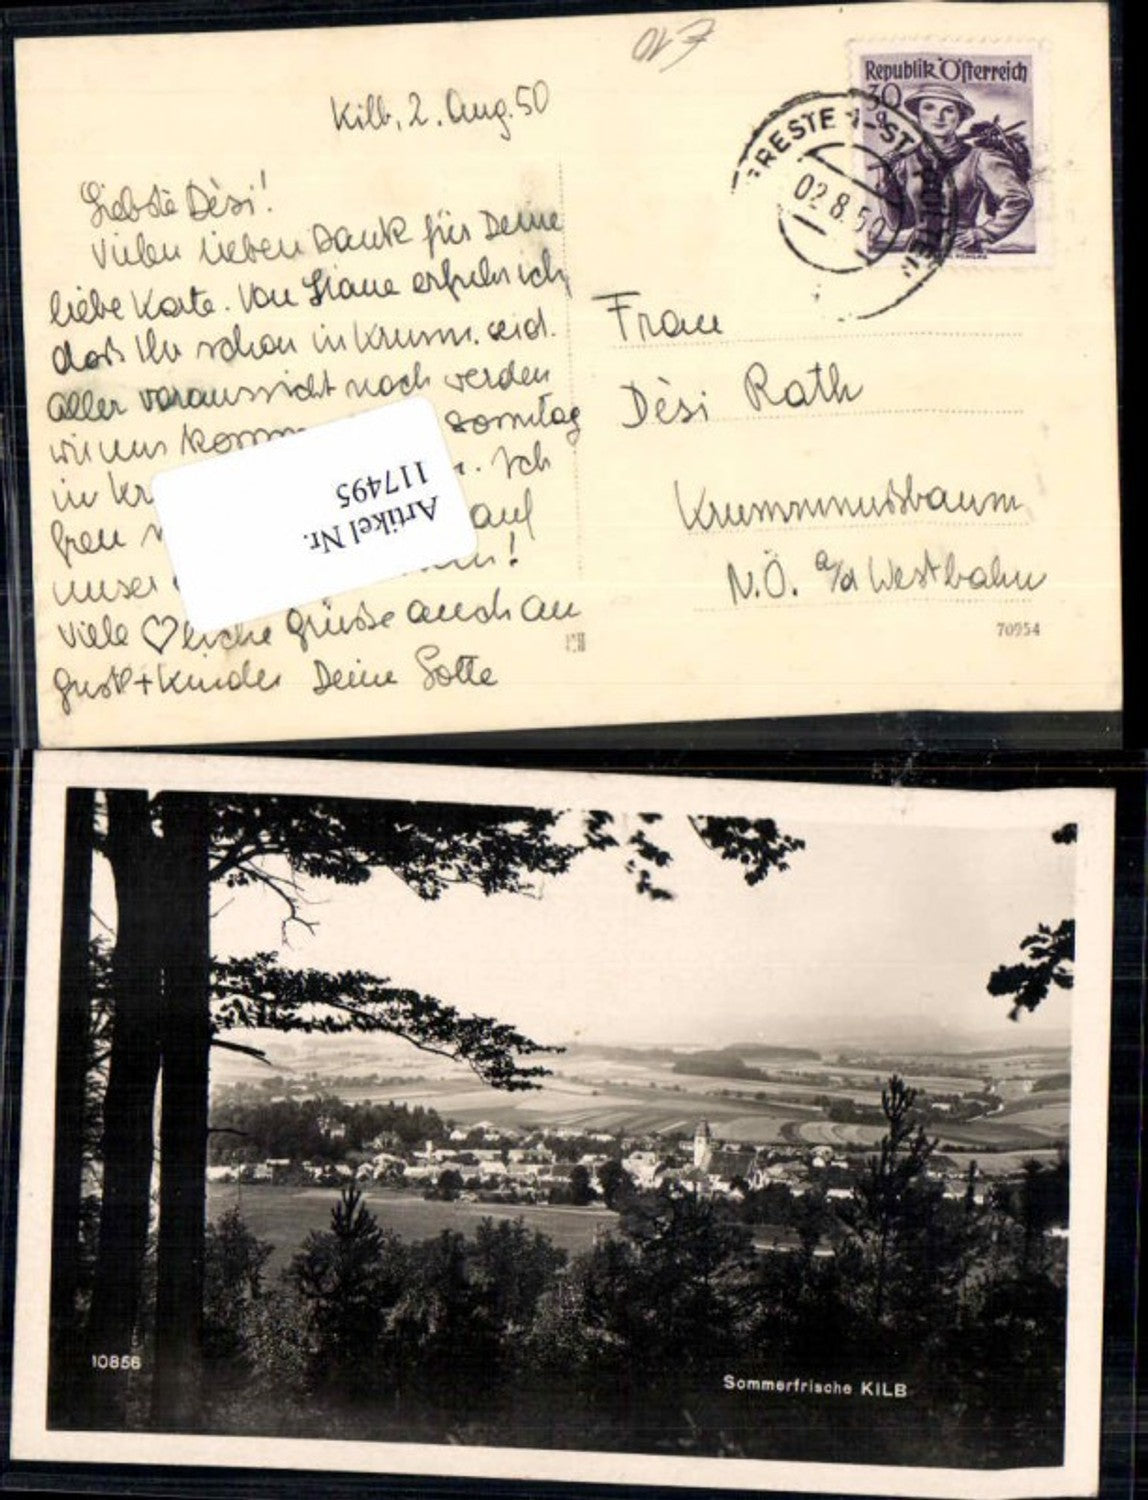 Kilb, 2. Aug. 50
Liebste Dèsi!
Vielen lieben Dank für Deine
liebe Karte. Von Liane erfuhr ich
daß Ihr schon in Krumm. seid.
Aller voraussicht nach werden
wir uns Sonntag
in Kr Ich
freu auf
unser
Viele ♡liche Grüsse auch an
Gustl + Kinder Deine Lotte
Artikel Nr.
117495
Republik Österreich
30
g
02.8.50
Frau
Dèsi Rath
Krummnussbaum
N.Ö. a/d Westbahn
70954
10856
Sommerfrische KILB